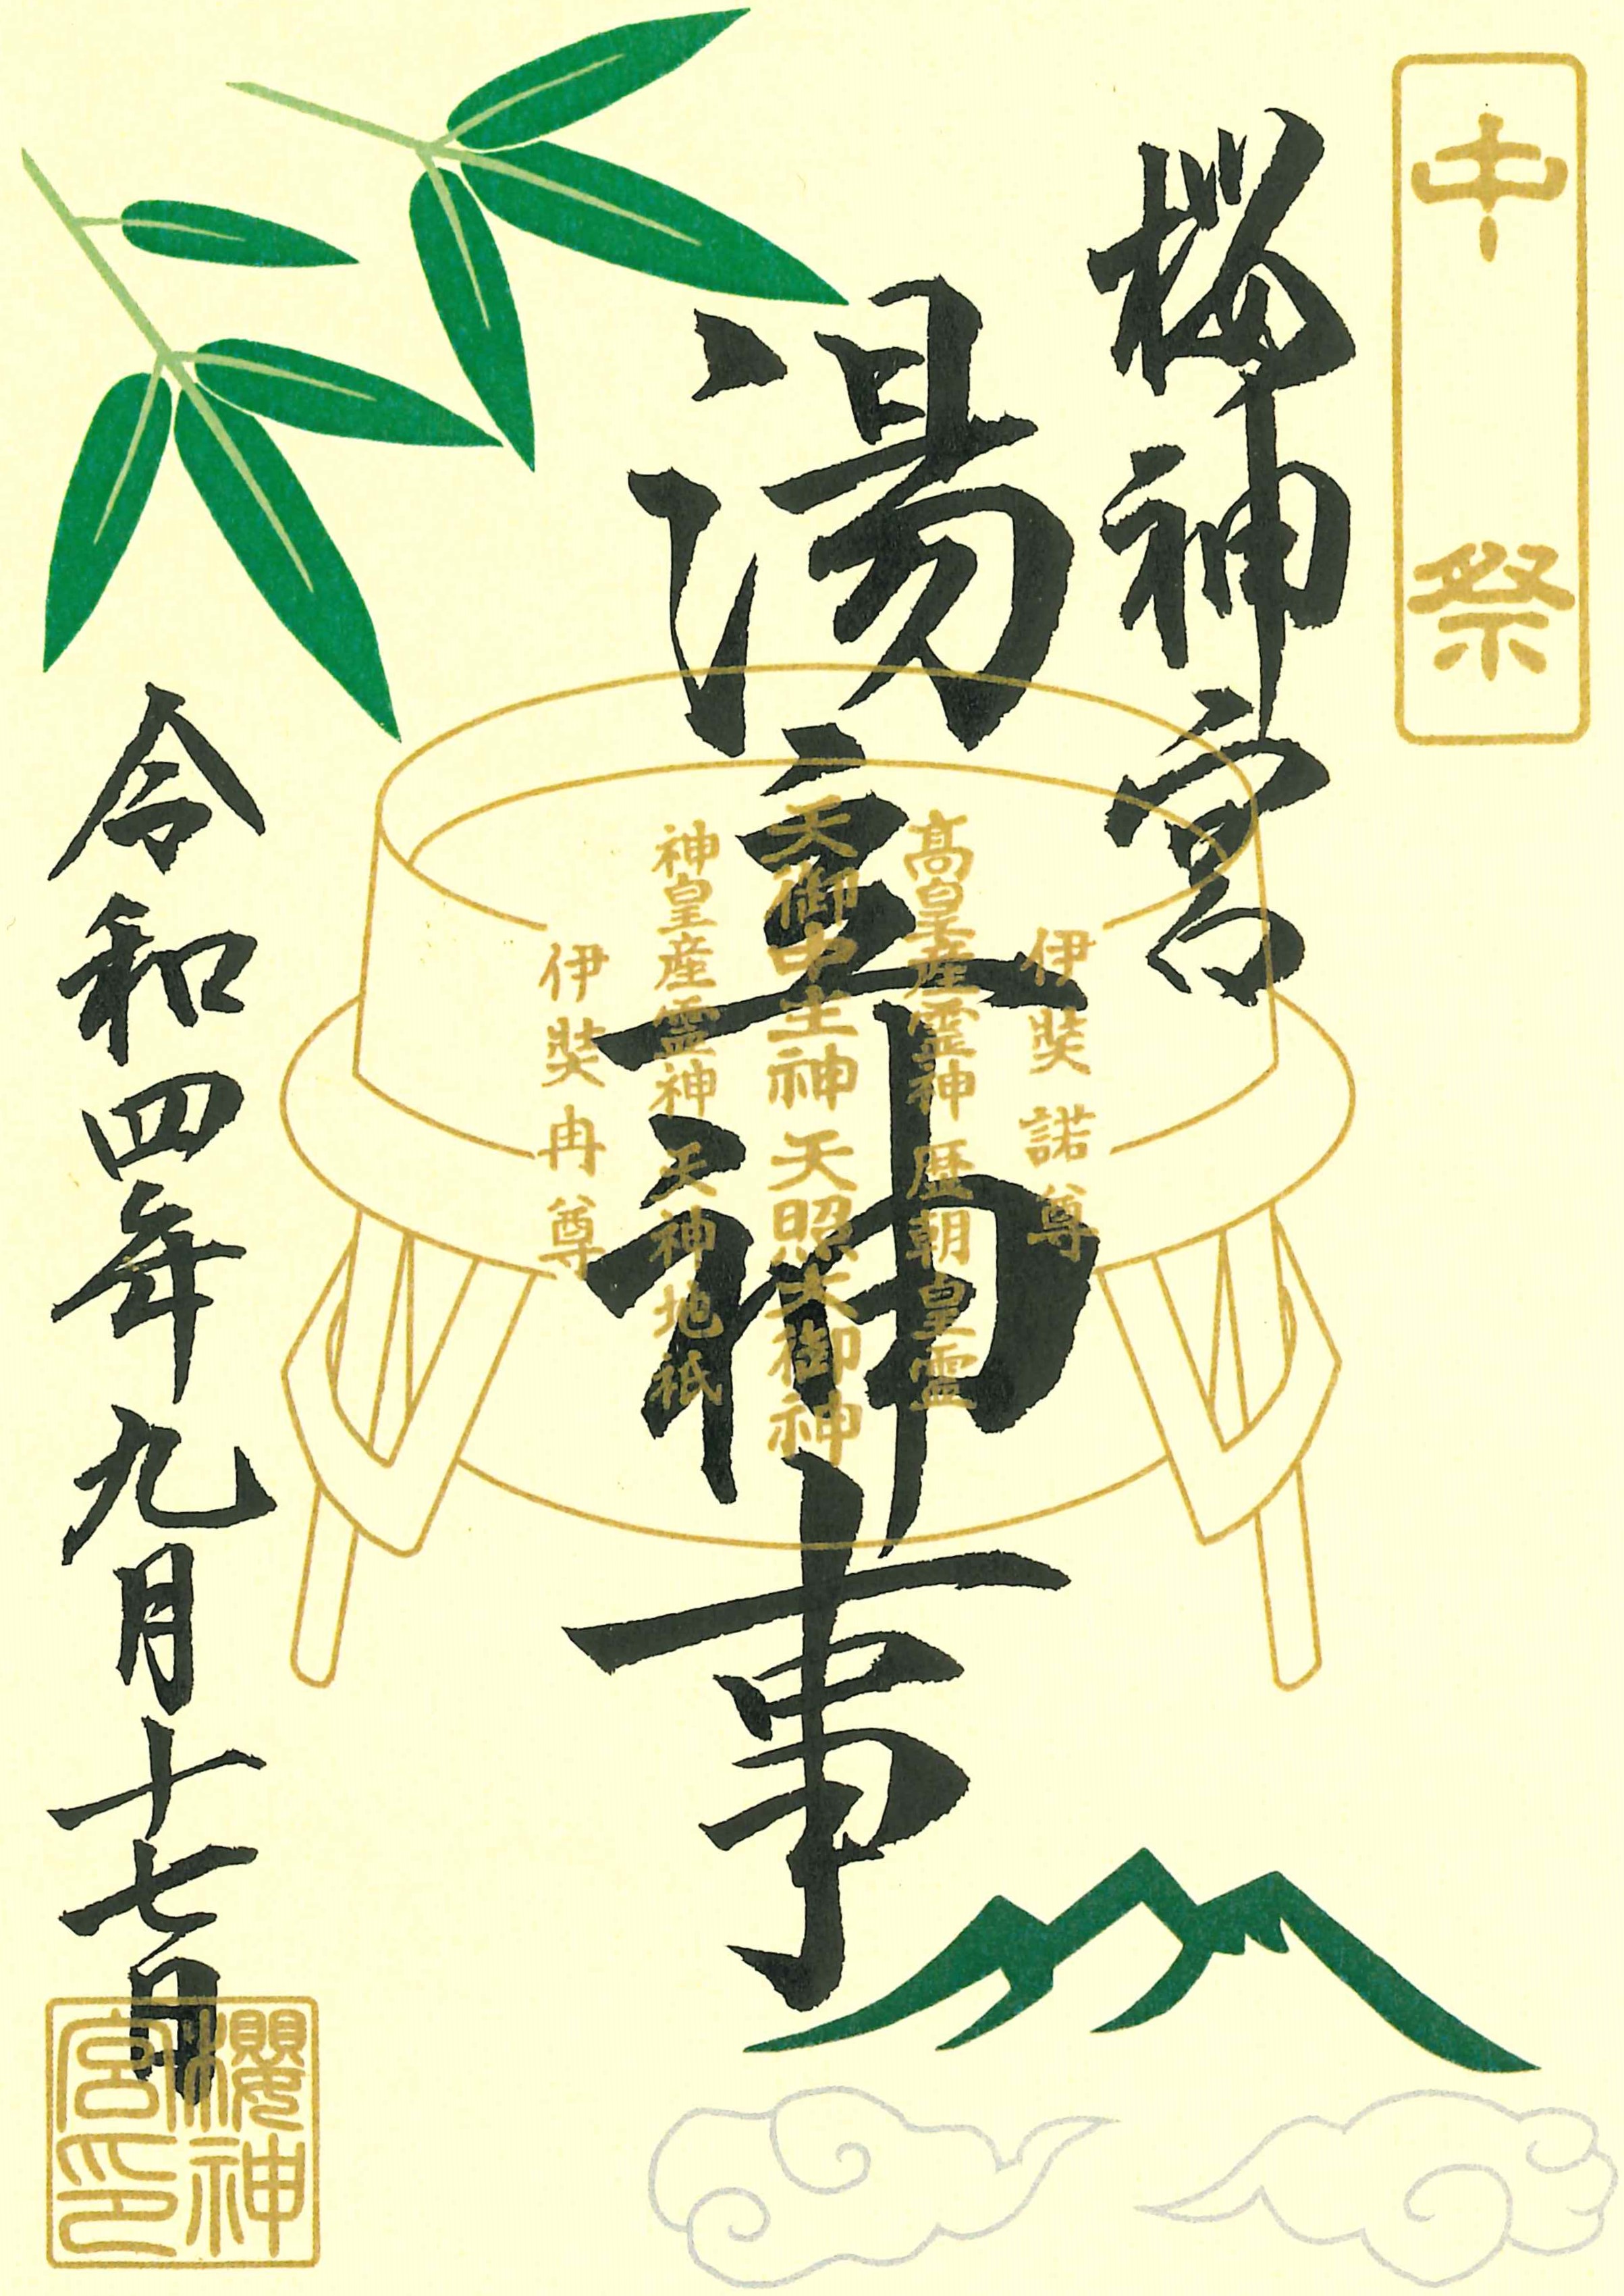 中祭
桜神宮
湯立神事
伊弉諾尊
高皇産霊神 歴朝皇霊
天御中主神 天照大御神
神皇産霊神 天神地祇
伊弉冉尊
令和四年九月十七日
櫻神宮印